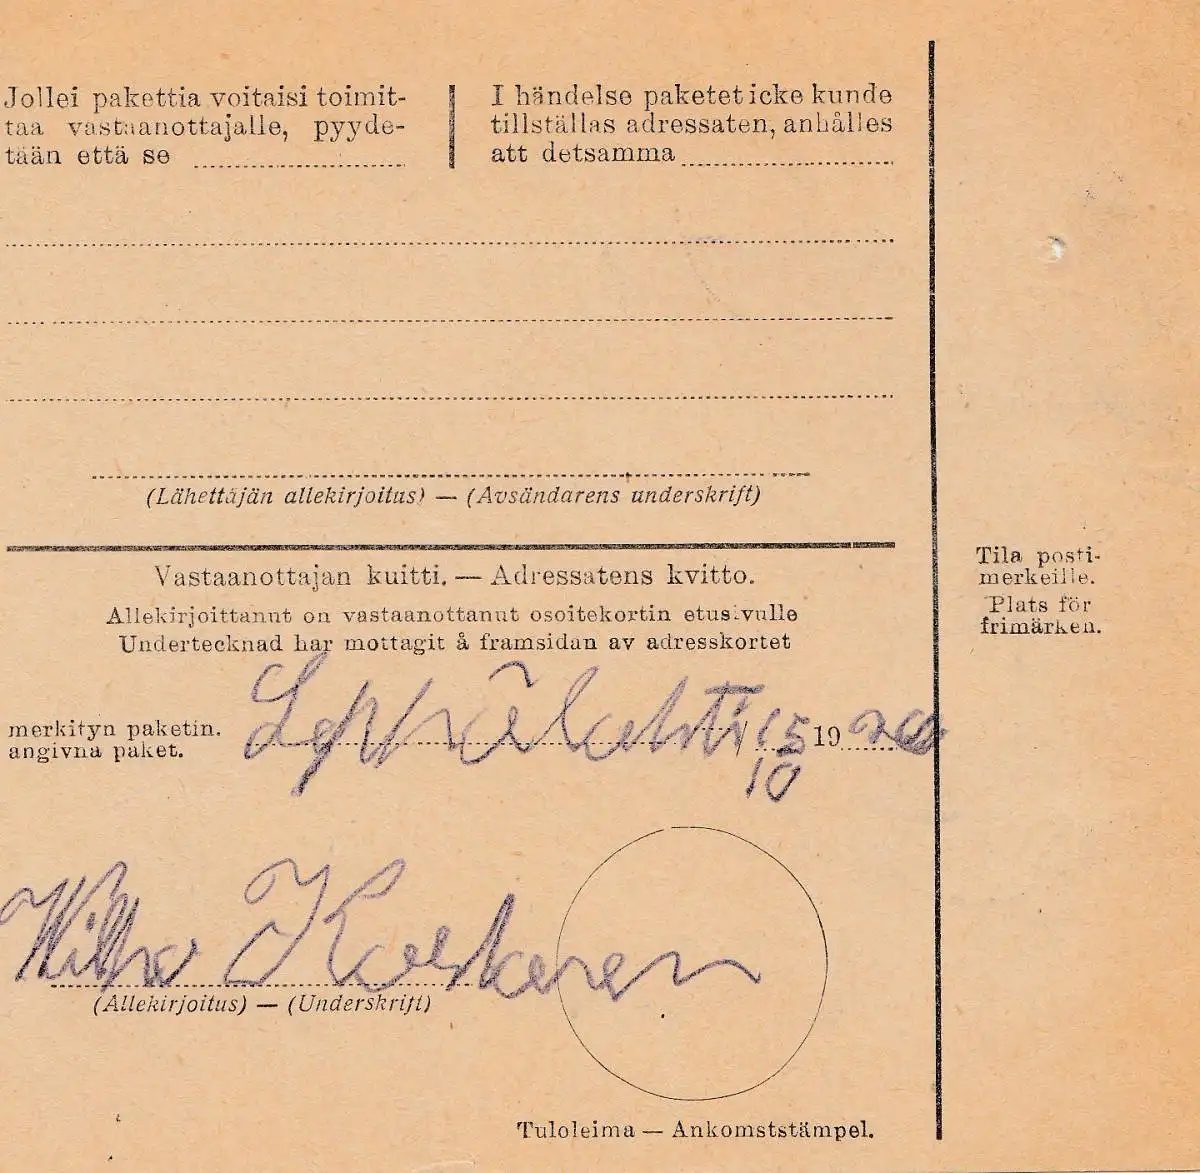 Jollei pakettia voitaisi toimit-
taa vastaanottajalle, pyyde-
tään että se
I händelse paketet icke kunde
tillställas adressaten, anhålles
att detsamma
(Lähettäjän allekirjoitus) — (Avsändarens underskrift)
Vastaanottajan kuitti. — Adressatens kvitto.
Allekirjoittanut on vastaanottanut osoitekortin etusivulle
Undertecknad har mottagit å framsidan av adresskortet
merkityn paketin.
angivna paket.
Leppälahti 15/10 19
Vilho
(Allekirjoitus) — (Underskrift)
Tuloleima — Ankomststämpel.
Tila posti-
merkeille.
Plats för
frimärken.